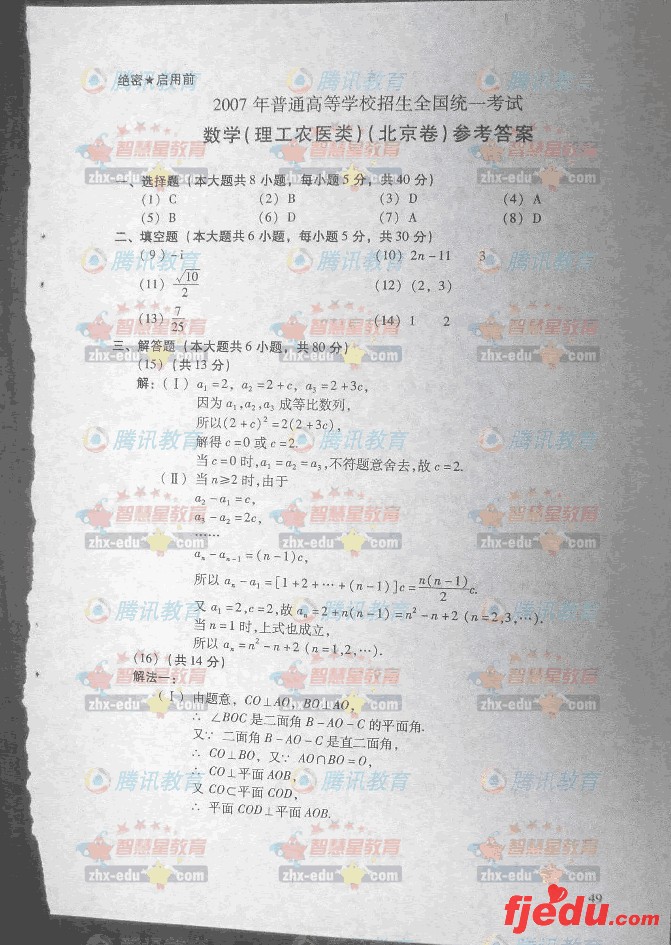 绝密★启用前
2007 年普通高等学校招生全国统一考试
数学(理工农医类)(北京卷)参考答案
一、选择题(本大题共 8 小题,每小题 5 分,共 40 分)
(1) C (2) B (3) D (4) A
(5) B (6) D (7) A (8) D
二、填空题(本大题共 6 小题,每小题 5 分,共 30 分)
(9) -i (10) 2n-11 3
(11) √10/2 (12) (2, 3)
(13) 7/25 (14) 1 2
三、解答题(本大题共 6 小题,共 80 分)
(15) (共 13 分)
解:(Ⅰ) a₁=2, a₂=2+c, a₃=2+3c,
因为 a₁,a₂,a₃ 成等比数列,
所以(2+c)²=2(2+3c),
解得 c=0 或 c=2.
当 c=0 时,a₁=a₂=a₃,不符题意舍去,故 c=2.
(Ⅱ) 当 n≥2 时,由于
a₂-a₁=c,
a₃-a₂=2c,
……
aₙ-aₙ₋₁=(n-1)c,
所以 aₙ-a₁=[1+2+…+(n-1)]c=n(n-1)/2 c.
又 a₁=2,c=2,故 aₙ=2+n(n-1)=n²-n+2 (n=2,3,…).
当 n=1 时,上式也成立,
所以 aₙ=n²-n+2 (n=1,2,…).
(16) (共 14 分)
解法一:
(Ⅰ) 由题意, CO⊥AO, BO⊥AO,
∴ ∠BOC 是二面角 B-AO-C 的平面角.
又∵ 二面角 B-AO-C 是直二面角,
∴ CO⊥BO, 又∵ AO∩BO=O,
∴ CO⊥平面 AOB,
又 CO⊂平面 COD,
∴ 平面 COD⊥平面 AOB.
49
fjedu.com
腾讯教育
智慧星教育
zhx-edu.com